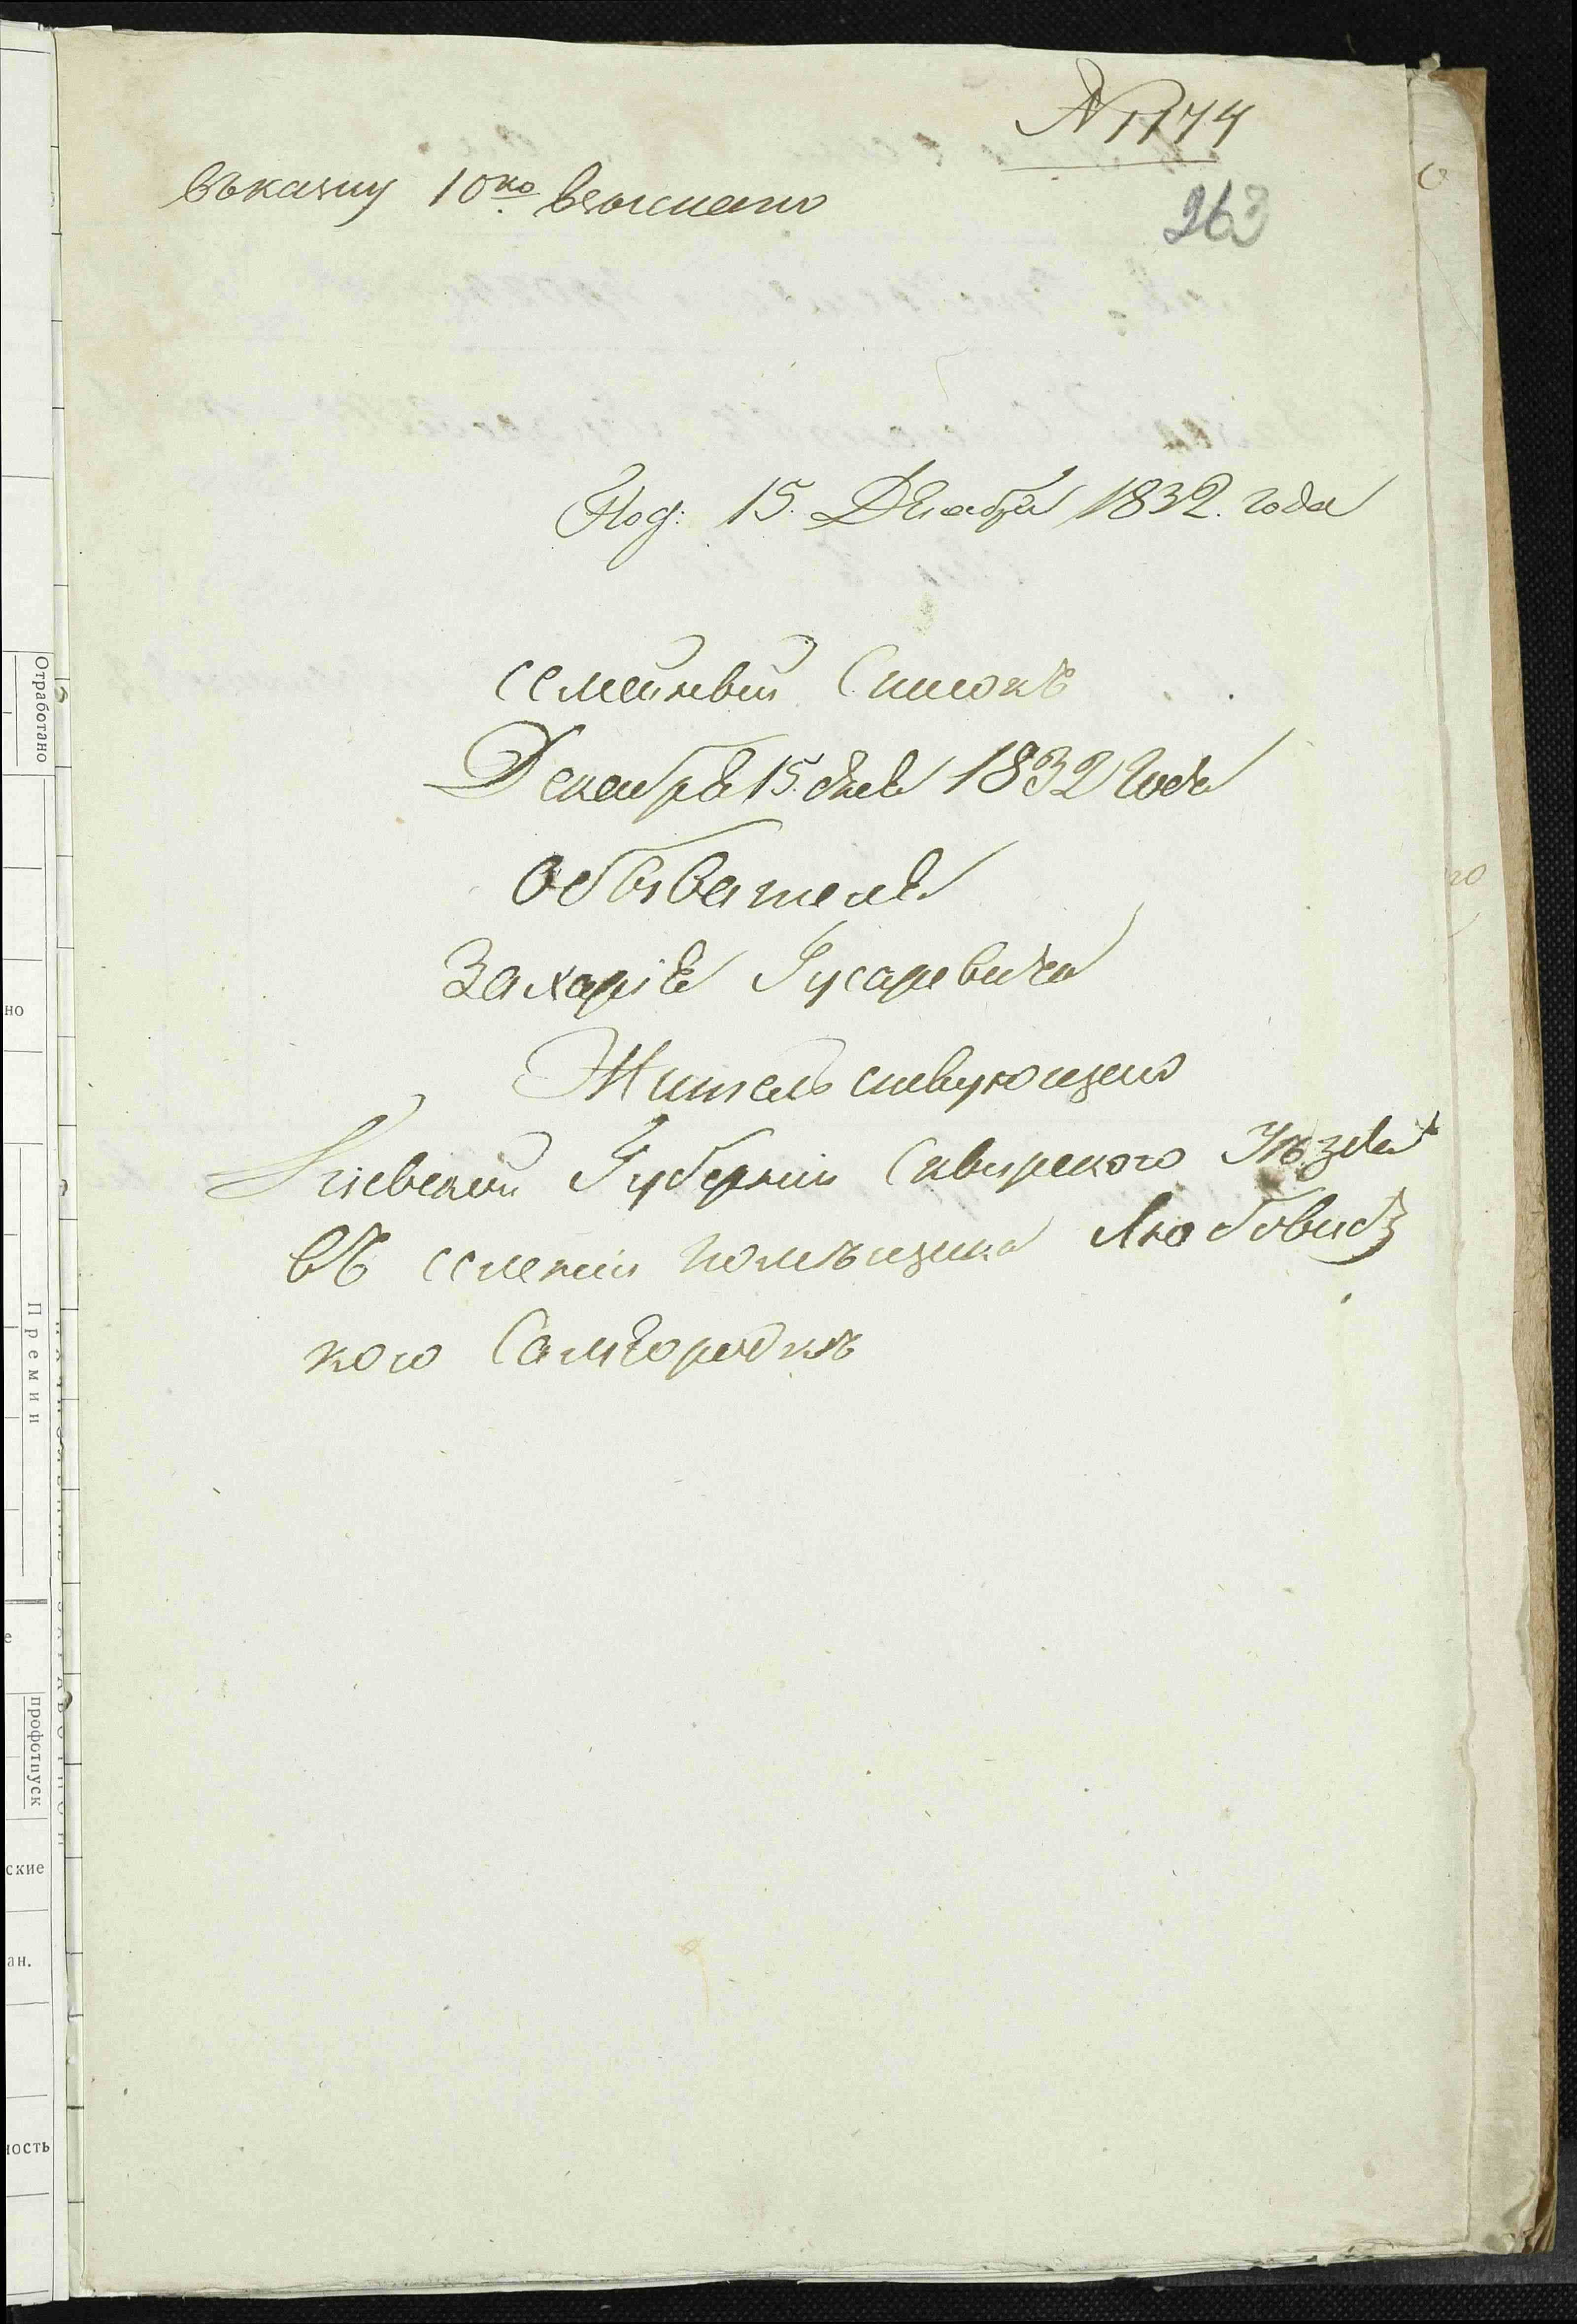 № 1774
въ казну 10 ко. взыскано
263
Под: 15. Декабря 1832. года
семейный Списокъ
Декабря 15. дня 1832 года
Обывателя
Захарія Гусаревича
Жительствующаго
Кіевской Губерніи Сквирского Уѣзда
въ селеніи помѣщика Любовид
кого Самгородкѣ
Отработано
но
Премии
профотпуск
ские
ан.
ность